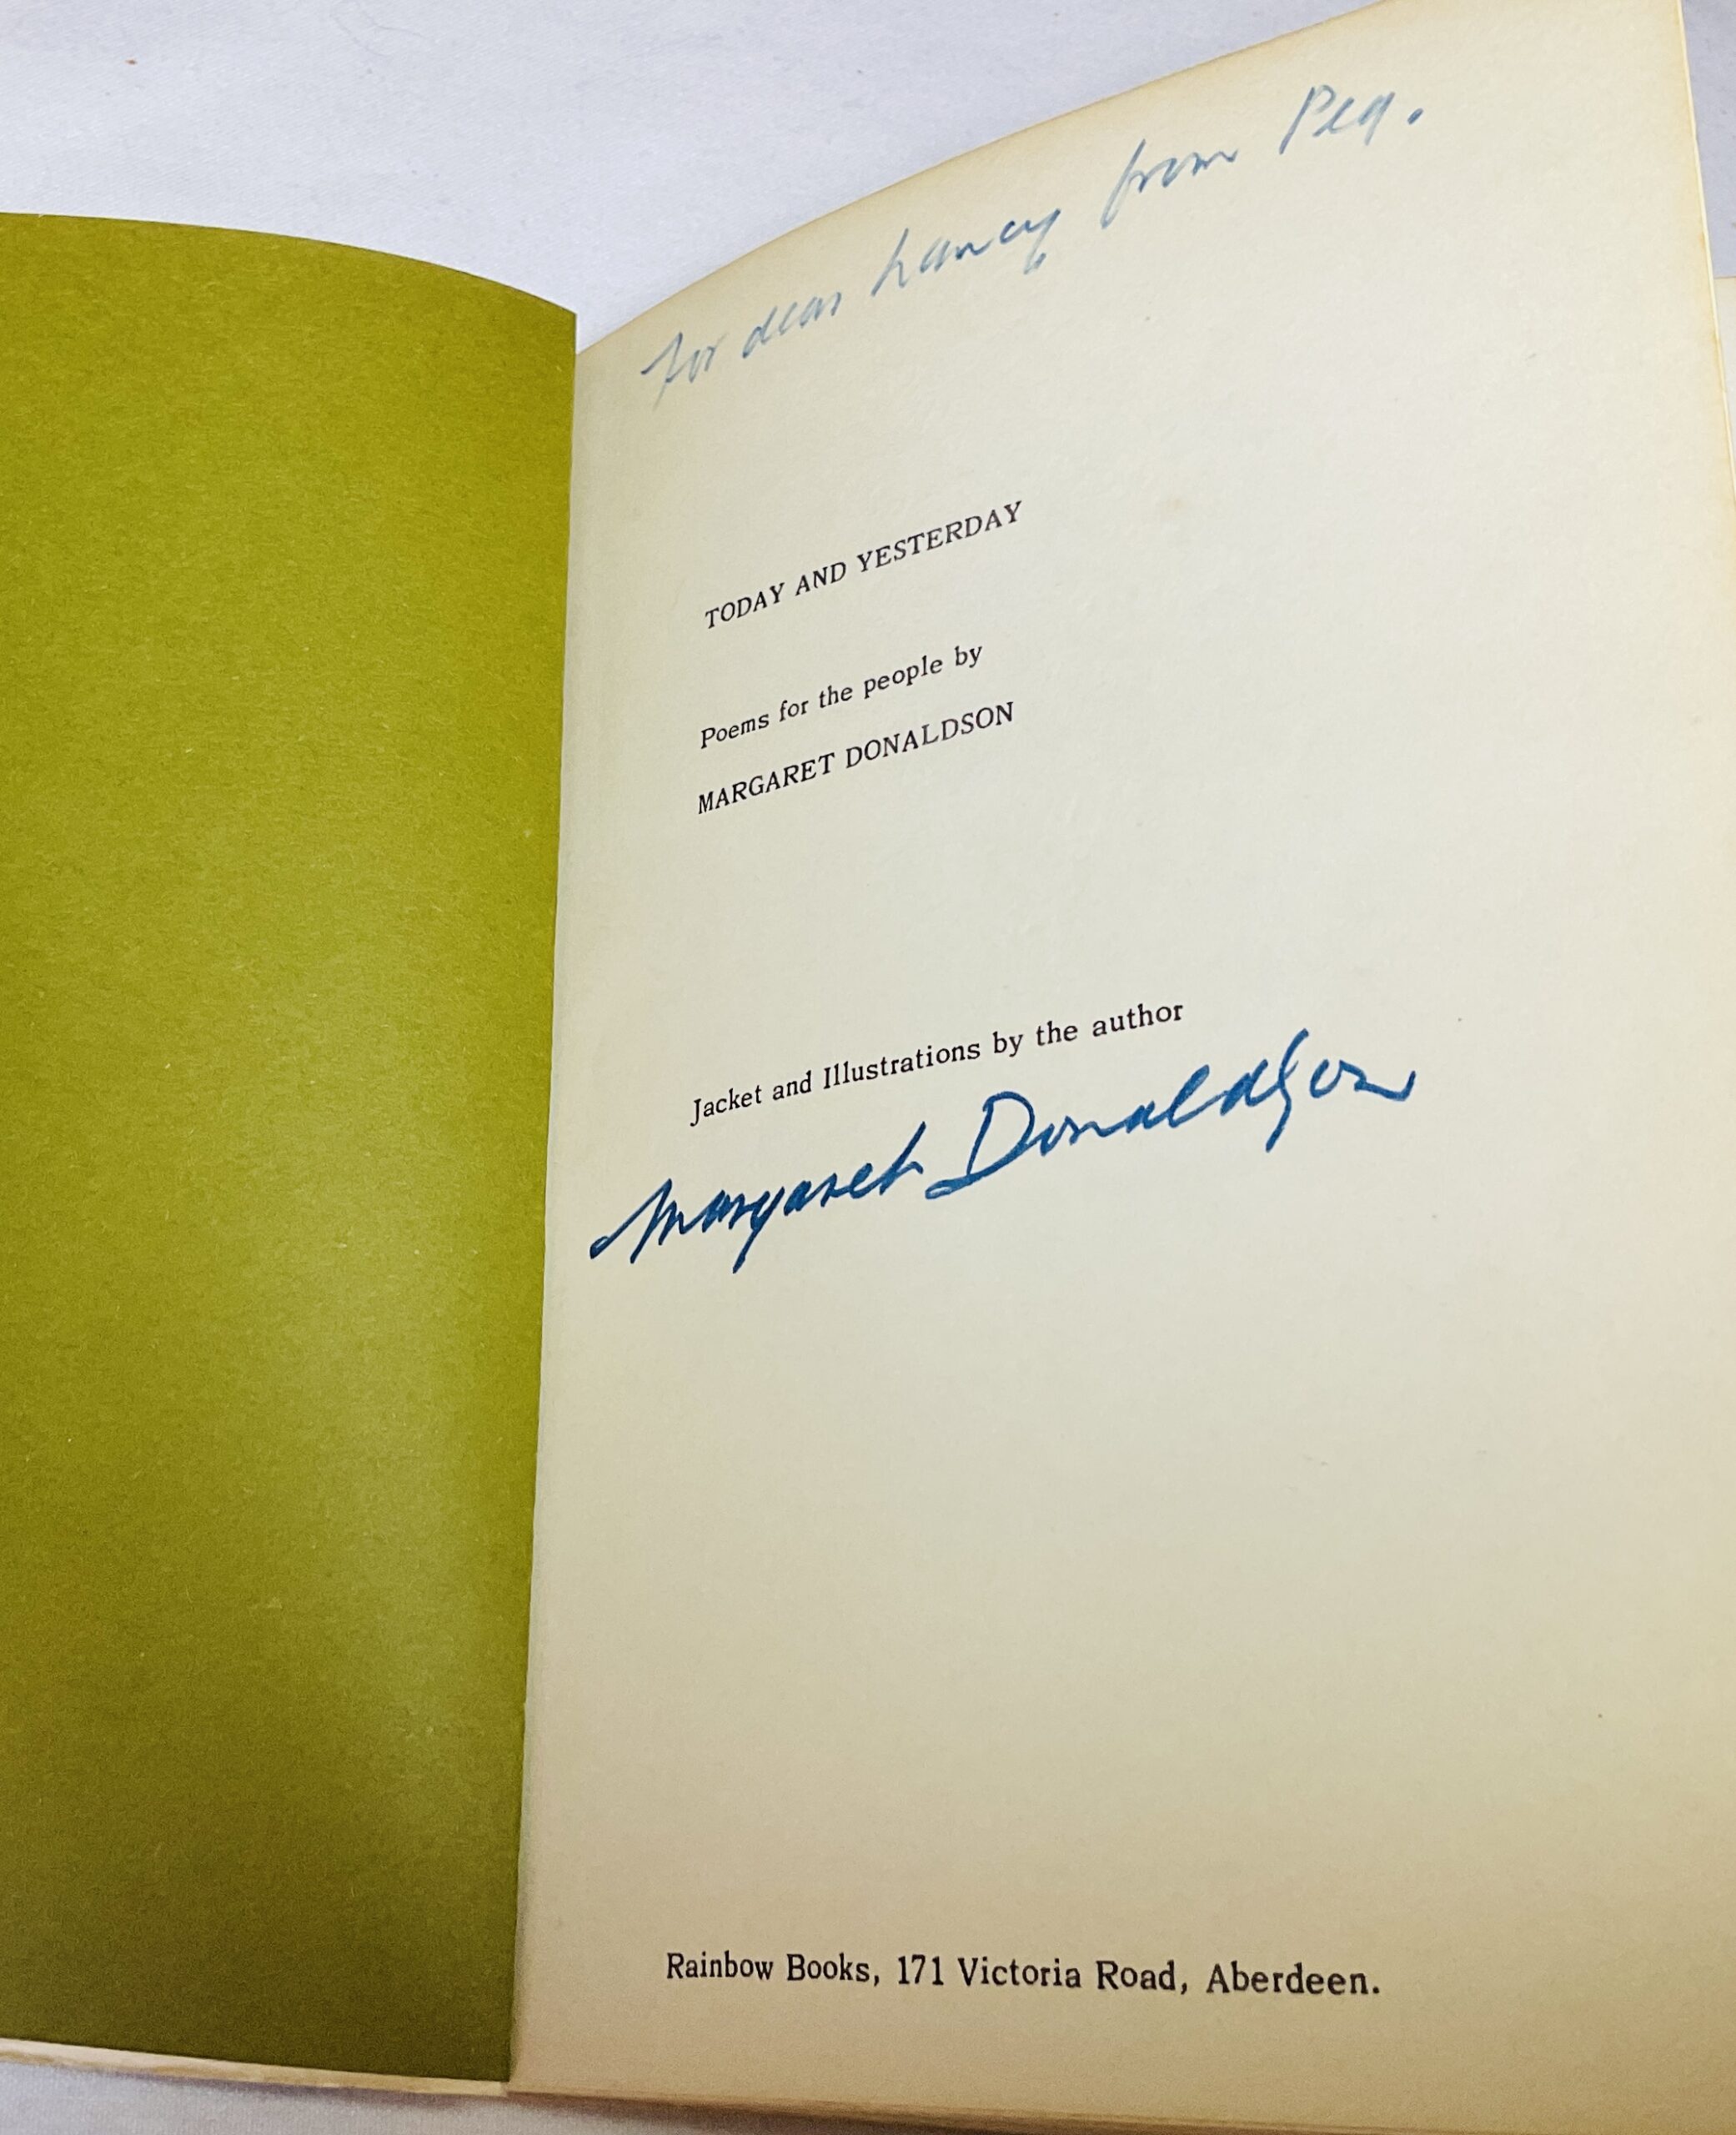 For dear Nancy from Peg.
TODAY AND YESTERDAY
Poems for the people by
MARGARET DONALDSON
Jacket and Illustrations by the author
Margaret Donaldson
Rainbow Books, 171 Victoria Road, Aberdeen.